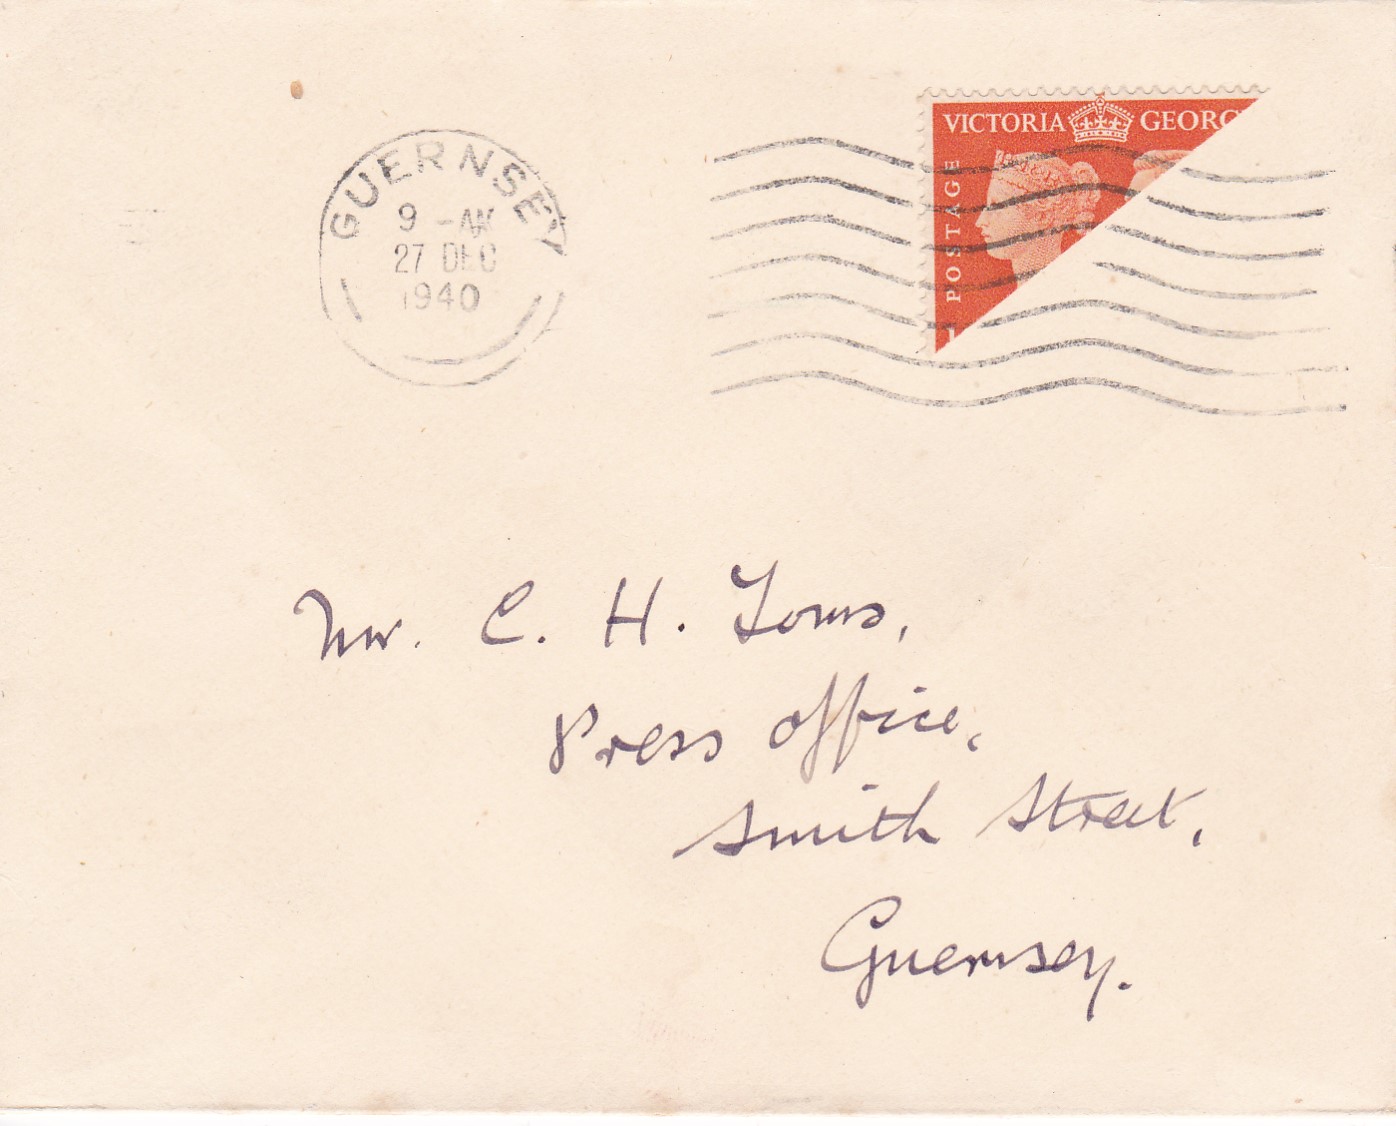 GUERNSEY
9 - AM
27 DEC
1940
VICTORIA GEORG
POSTAGE
1
Mr. C. H. Toms,
Press Office,
Smith Street,
Guernsey.